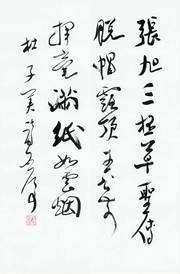 張旭三杯草聖傳
脫帽露頂王公前
揮毫落紙如雲烟
杜子美詩